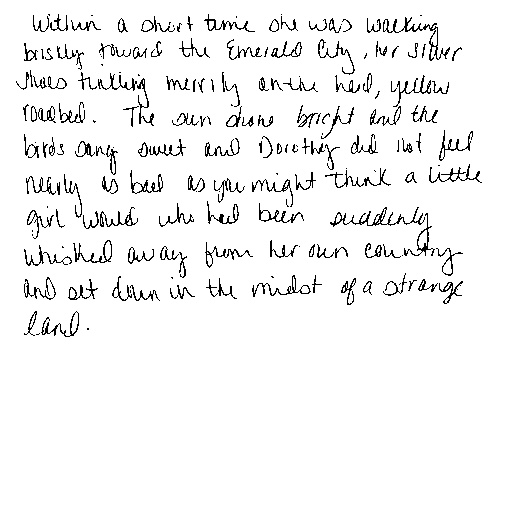 Within a short time she was walking
briskly toward the Emerald City, her silver
shoes tinkling merrily on the hard, yellow
roadbed. The sun shone bright and the
birds sang sweet and Dorothy did not feel
nearly as bad as you might think a little
girl would who had been suddenly
whisked away from her own country
and set down in the midst of a strange
land.